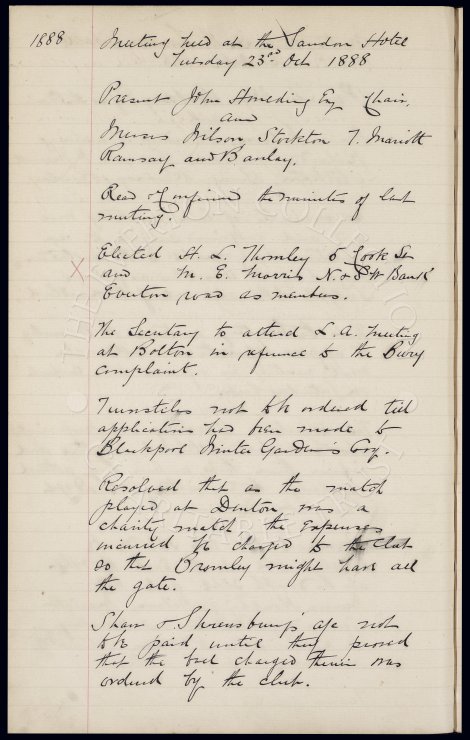 1888
Meeting held at the Sandon Hotel
Tuesday 23rd Oct 1888
Present John Houlding Esq Chair.
and
Messrs Wilson, Stockton T. Mariott
Ramsay and Barclay.
Read & Confirmed the minutes of last
meeting.
Elected H. L. Thomley 5 Cook St
and M. E. Morris N. & S W Bank
Everton road as members.
The Secretary to attend L.A. meeting
at Bolton in refernce to the Bury
complaint.
Turnstiles not to be ordered till
application had been made to
Blackpool Winter Gardens Coy.
Resolved that as the match
played at Denton was a
charity match, the expenses
incurred be charged to the club
so that Bromley might have all
the gate.
Shaw & Shrewsbury's a/c not
to be paid until they proved
that the ball charged therein was
ordered by the club.